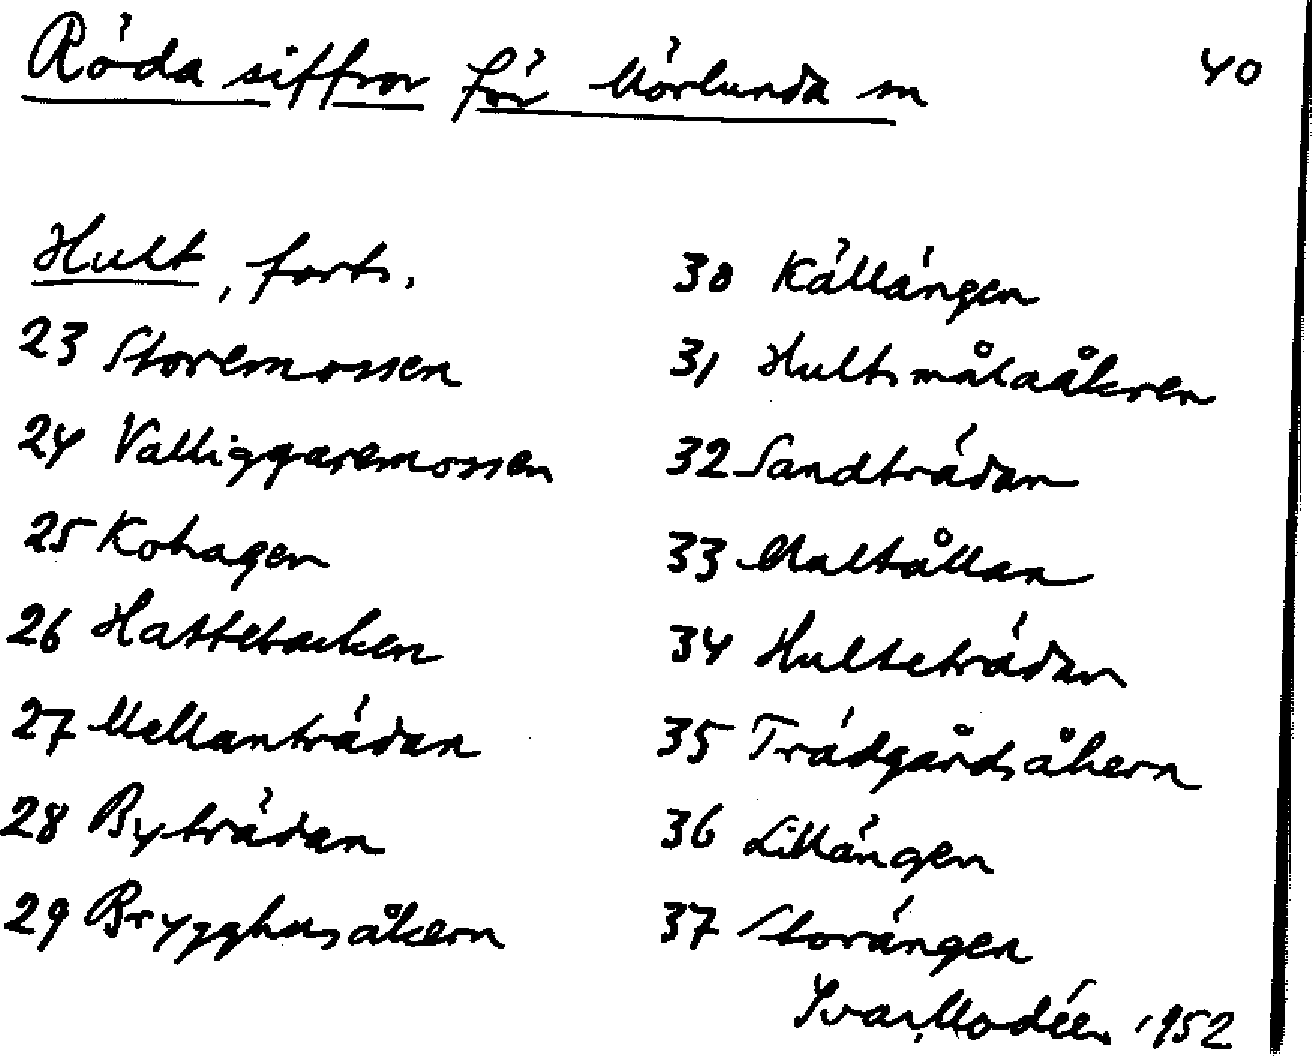 Röda siffror för Mörlunda sn
40
Hult, forts.
23 Storemossen
24 Valliggaremossen
25 Kohagen
26 Hattebacken
27 Mellanträdan
28 Byträdan
29 Brygghusåkern
30 Källängen
31 Hultsmålaåkren
32 Sandträdan
33 Maltållan
34 Hulteträdan
35 Trädgårdsåkern
36 Lillängen
37 Storängen
Ivar Modéer 1952